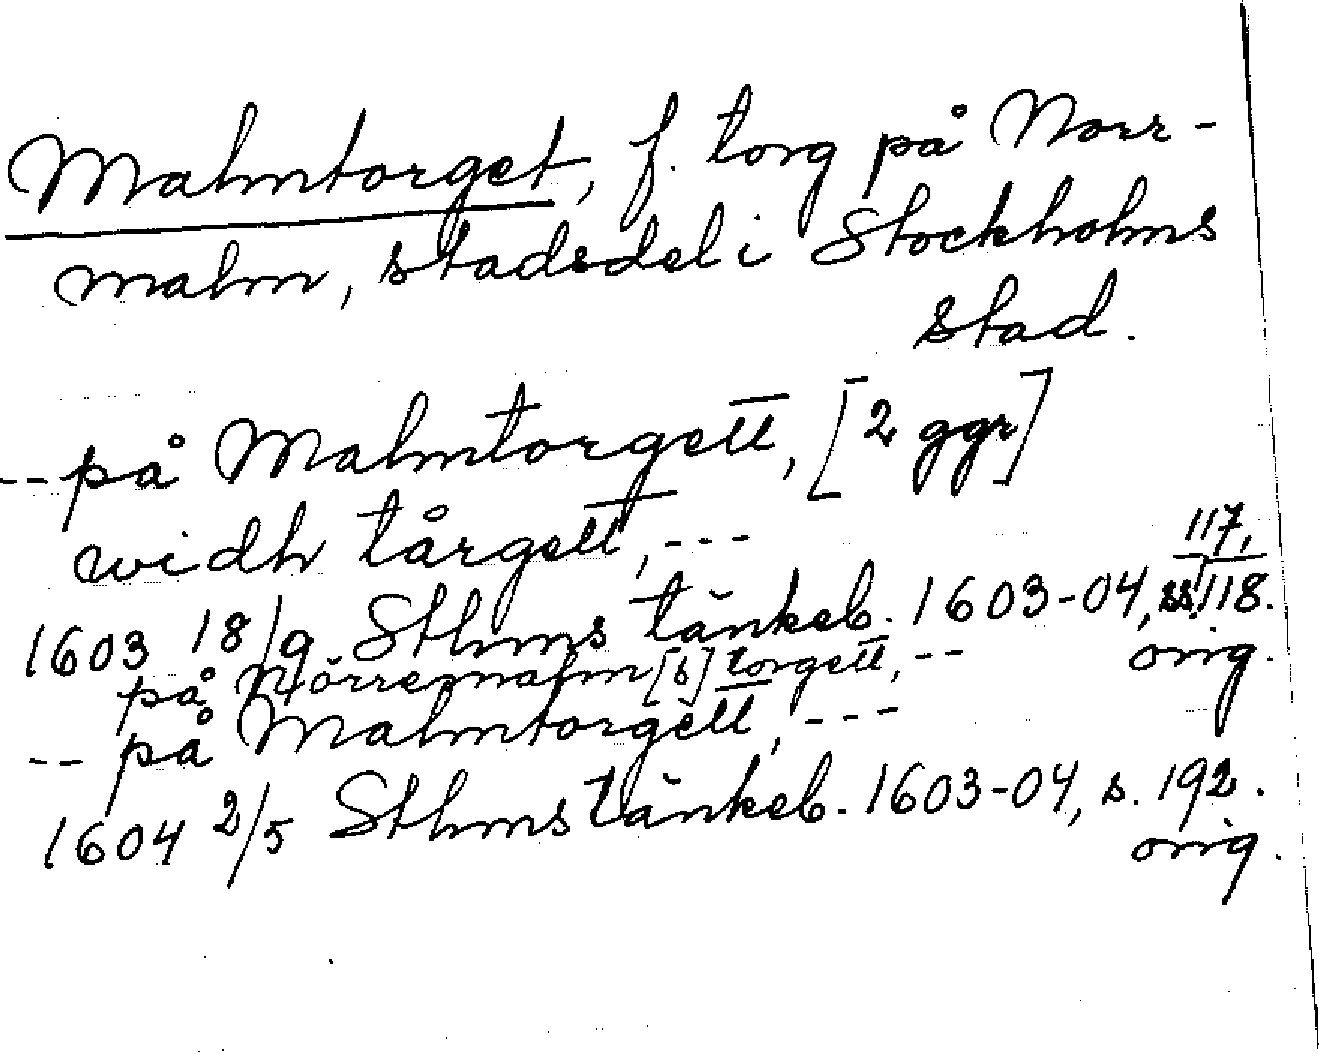 Malmtorget, f. torg på Norr-
malm, stadsdel i Stockholms
stad.
-- på Malmtorgett, [2 ggr]
widh tårgett, ---
117,
1603 18/9 Sthms tänkeb. 1603-04, ss. 118.
orig.
på Nörremalm [s] torgett, --
-- på Malmtorgett, ---
1604 2/5 Sthms tänkeb. 1603-04, s. 192.
orig.